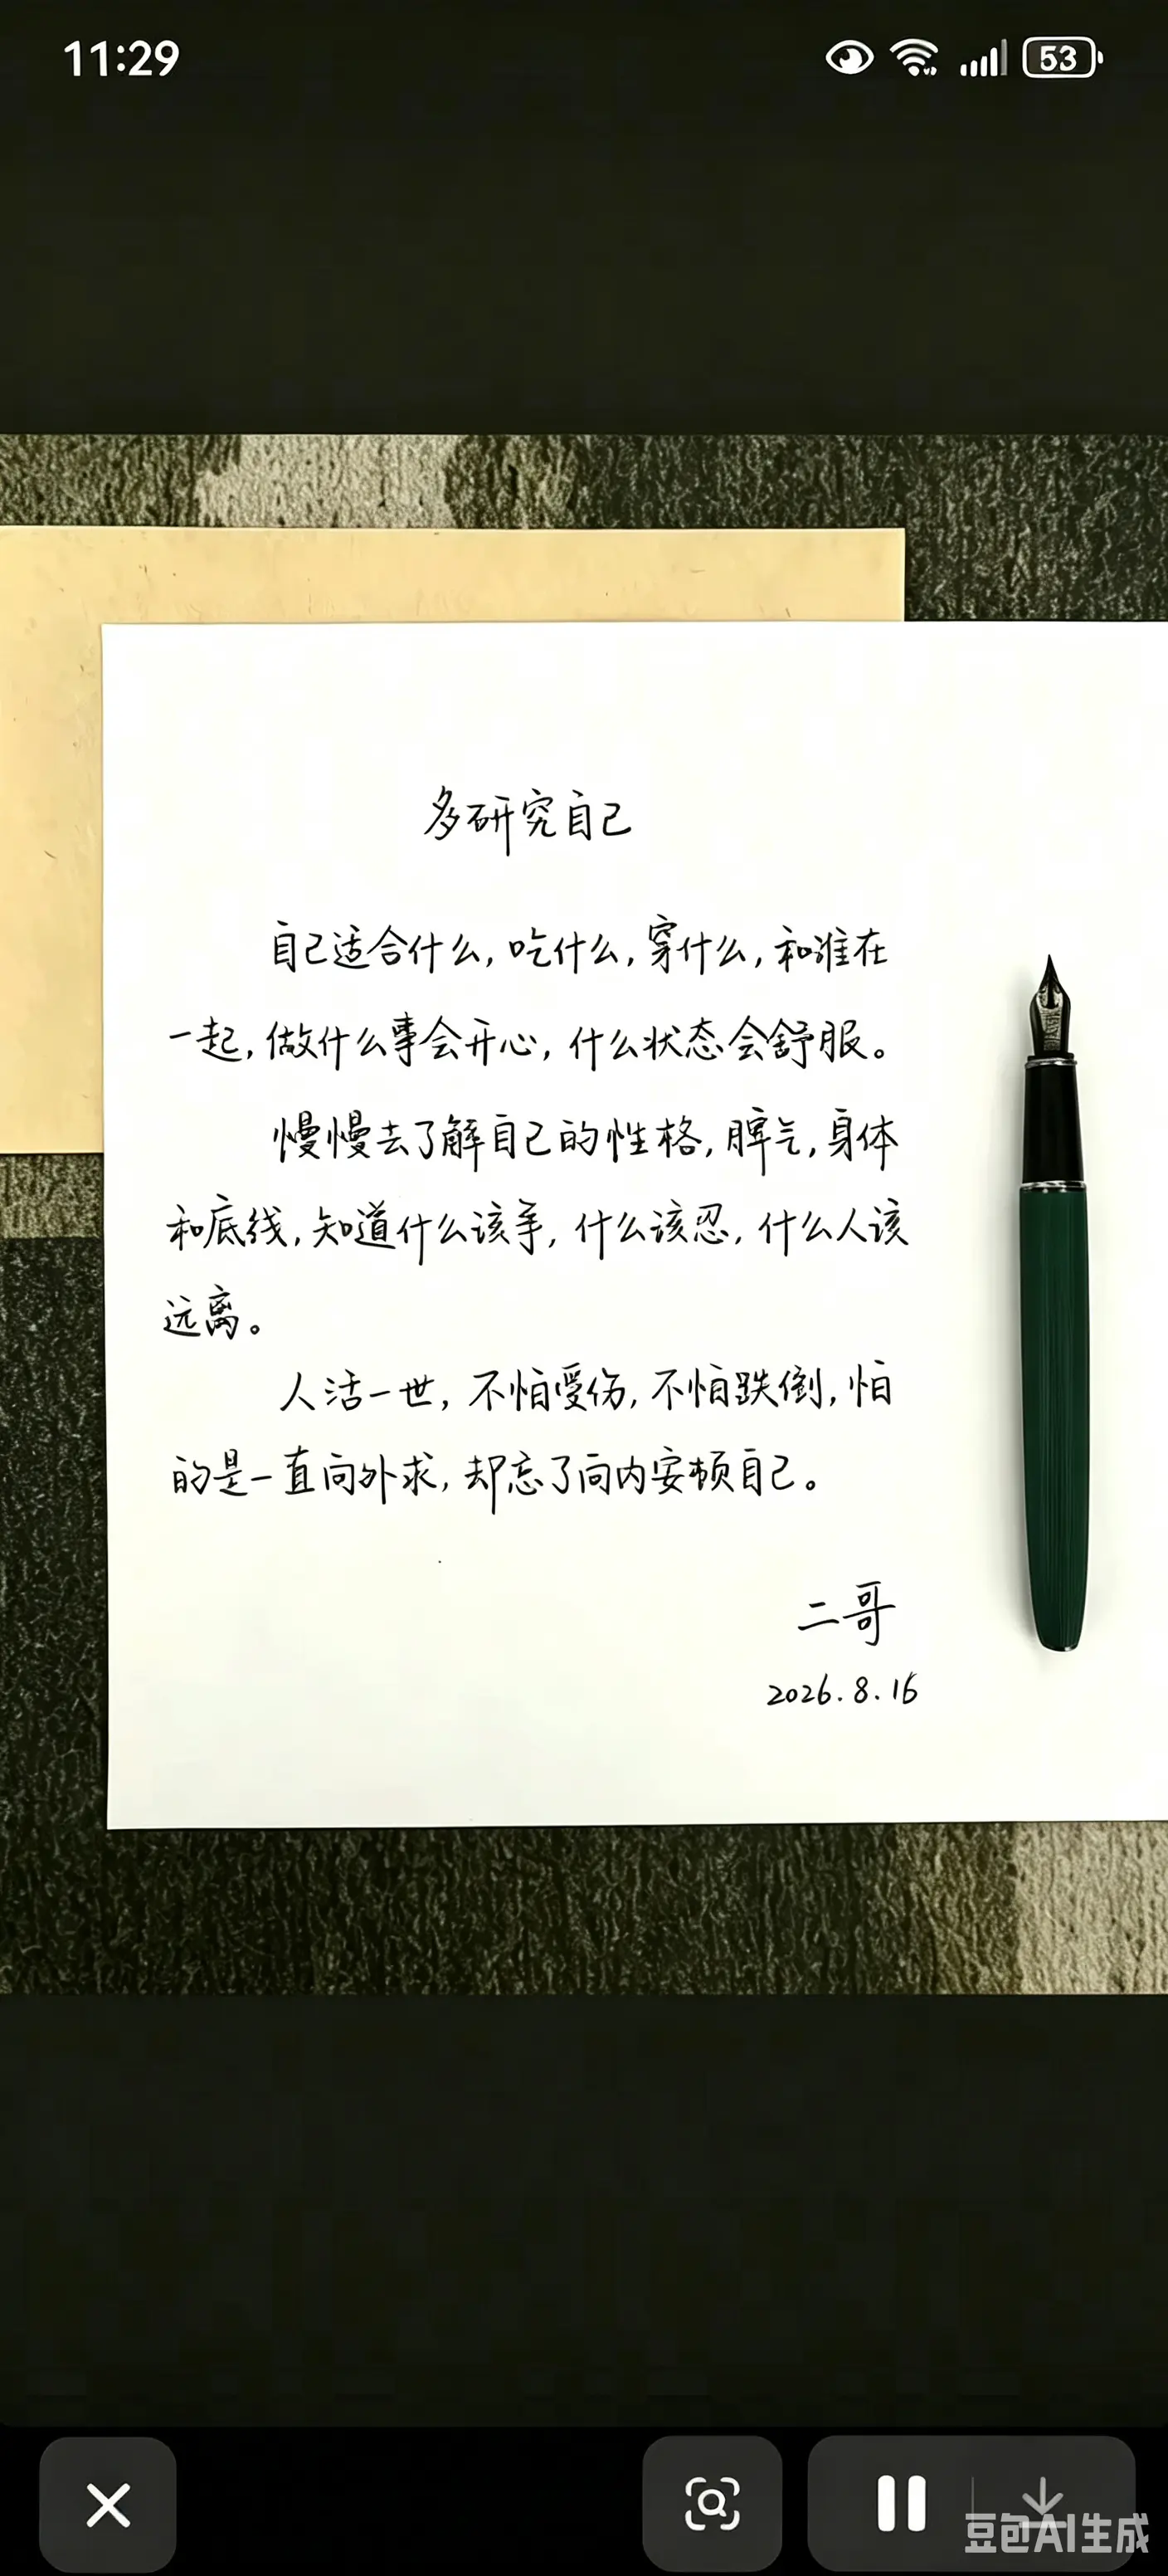 11:29
53
多研究自己
自己适合什么,吃什么,穿什么,和谁在
一起,做什么事会开心,什么状态会舒服。
慢慢去了解自己的性格,脾气,身体
和底线,知道什么该争,什么该忍,什么人该
远离。
人活一世,不怕受伤,不怕跌倒,怕
的是一直向外求,却忘了向内安顿自己。
二哥
2026.8.16
豆包AI生成